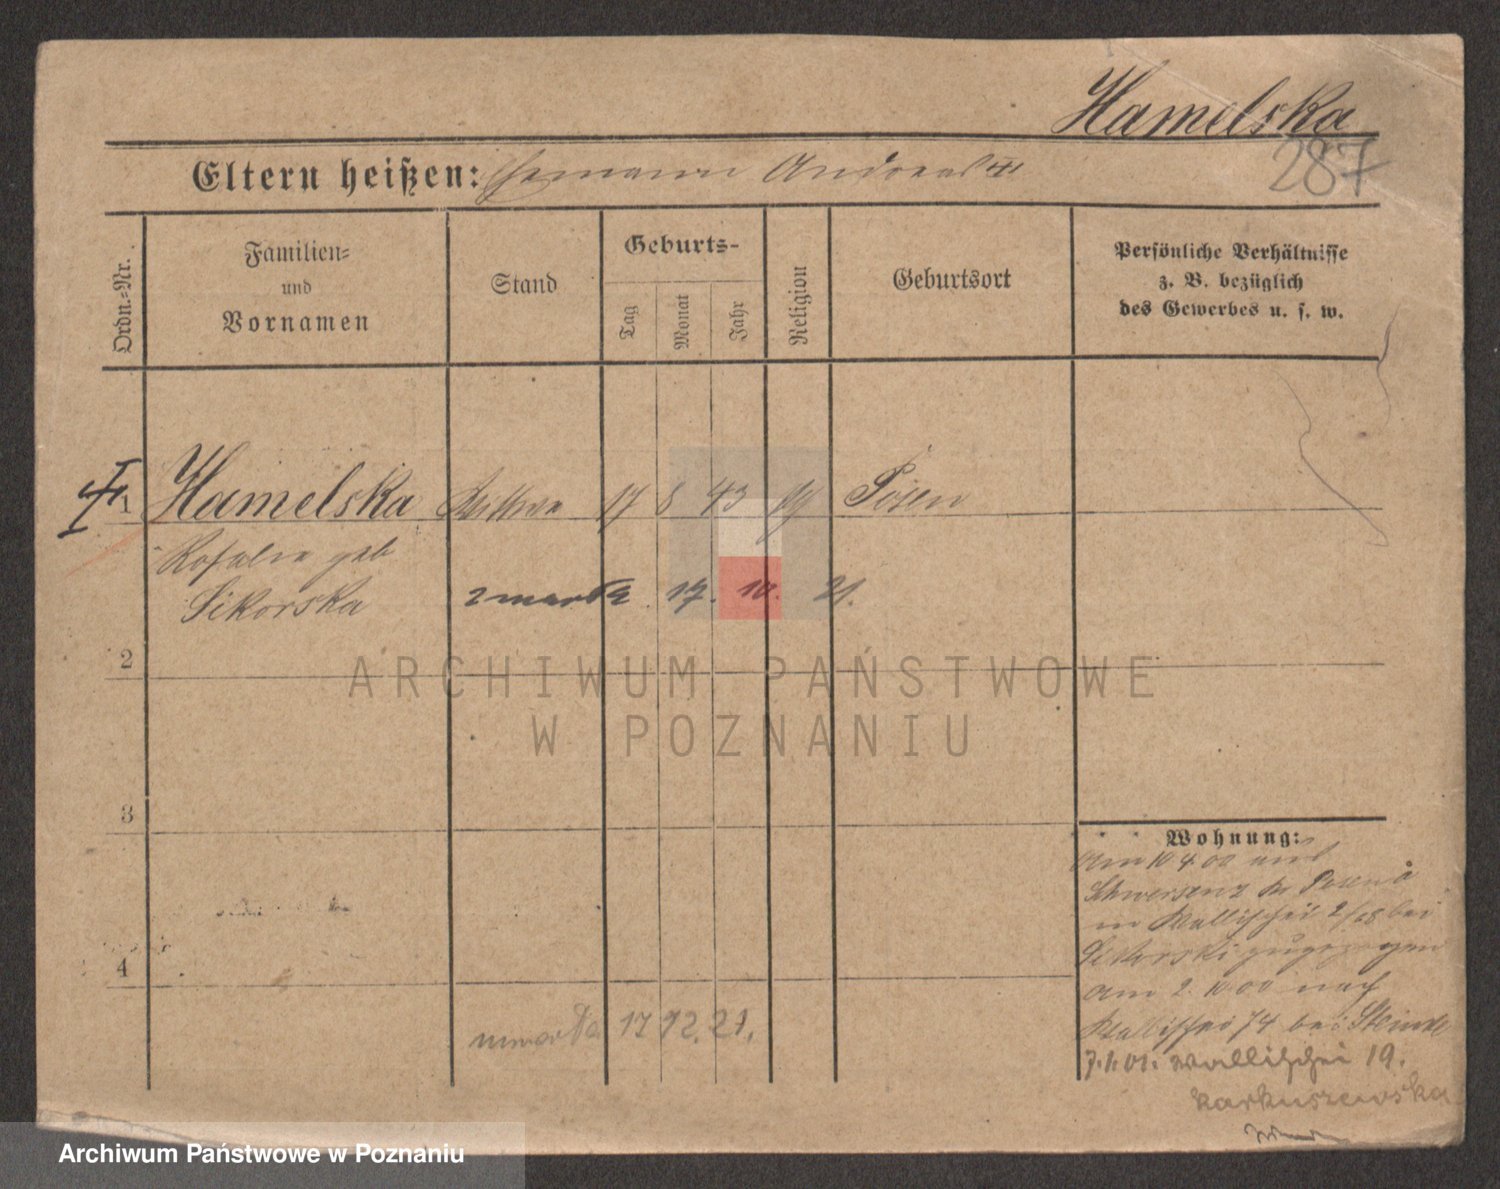 Hamelska
287
Eltern heißen: Hermann Andreas
Ordn.-Nr.
Familien-
und
Vornamen
Stand
Geburts-
Tag
Monat
Jahr
Religion
Geburtsort
Persönliche Verhältnisse
z. B. bezüglich
des Gewerbes u. s. w.
1 Hamelska Wittwe 17 8 43 Posen
Rosalie geb
Sikorska
zmarła 17. 10. 21.
2
ARCHIWUM PAŃSTWOWE
W POZNANIU
3
Wohnung:
Am 10 4.00 aus
Schwersenz Kr Posen
in Wallischei 2/ bei
Sikorski zugezogen
Am 2. 10 00 nach
Wallischei 74 bei
7.1.01. Wallischei 19.
Karkuszewska
4
umarła 17 12. 21.
Archiwum Państwowe w Poznaniu